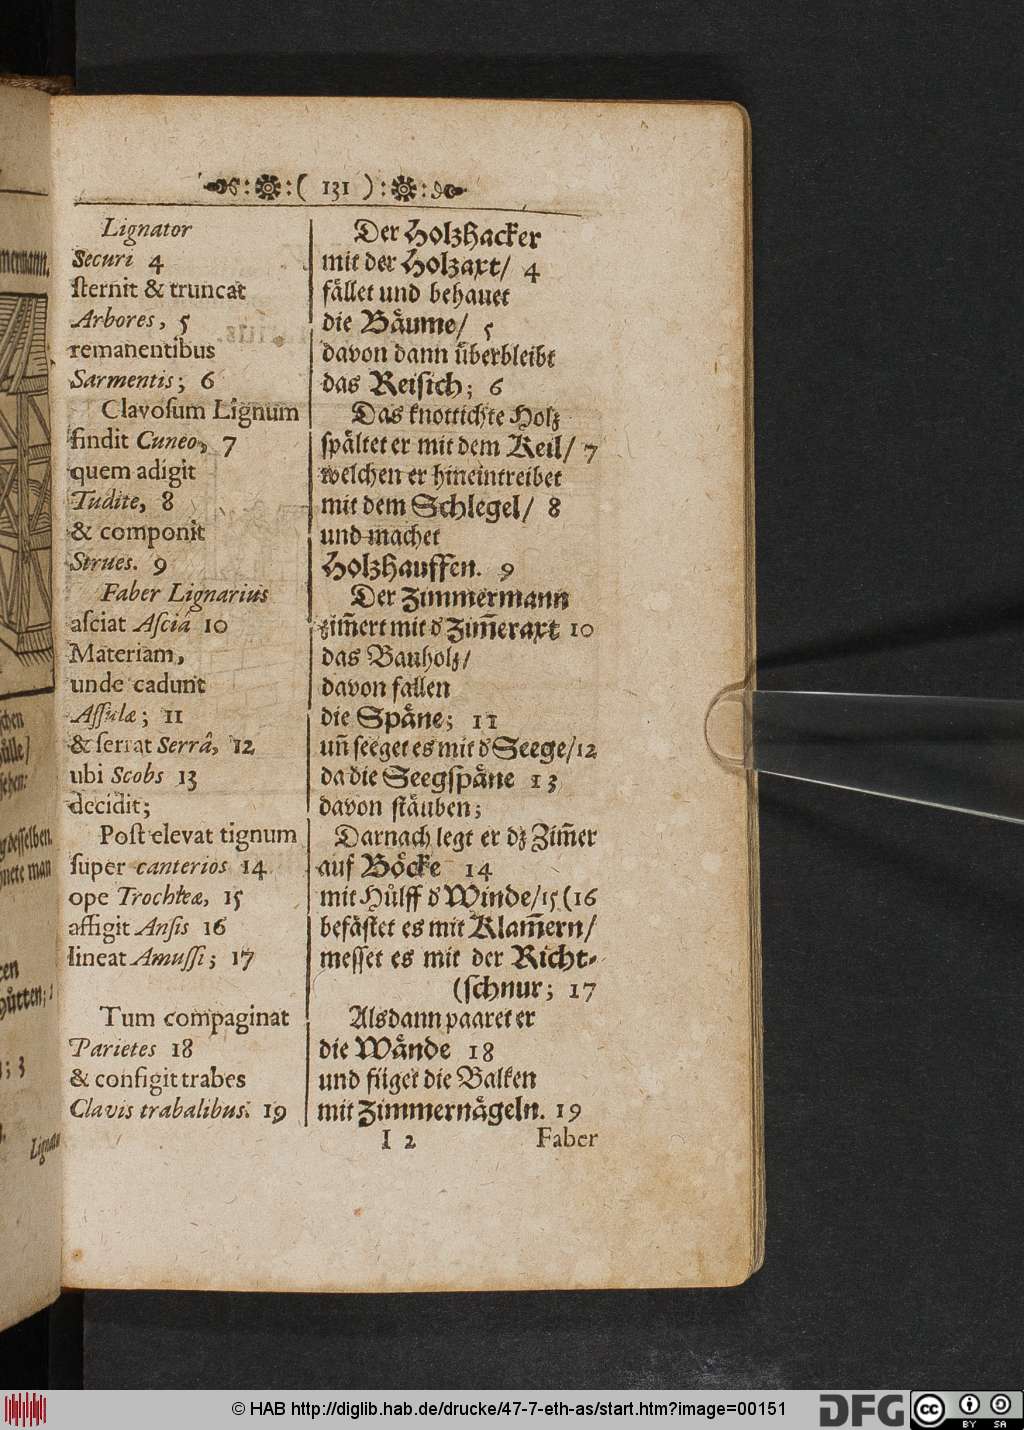 ( 131 )
Lignator
Securi 4
sternit & truncat
Arbores, 5
remanentibus
Sarmentis; 6
Clavosum Lignum
findit Cuneo, 7
quem adigit
Tudite, 8
& componit
Strues. 9
Faber Lignarius
asciat Asciâ 10
Materiam,
unde cadunt
Assulæ; 11
& serrat Serrâ, 12
ubi Scobs 13
decidit;
Post elevat tignum
super canterios 14
ope Trochleæ, 15
affigit Ansis 16
lineat Amussi; 17
Tum compaginat
Parietes 18
& configit trabes
Clavis trabalibus. 19
Der Holzhacker
mit der Holzaxt/ 4
fället und behauet
die Bäume/ 5
davon dann überbleibt
das Reisich; 6
Das knottichte Holz
spältet er mit dem Keil/ 7
welchen er hineintreibet
mit dem Schlegel/ 8
und machet
Holzhauffen. 9
Der Zimmermann
zim̃ert mit d' Zim̃eraxt 10
das Bauholz/
davon fallen
die Späne; 11
uñ seeget es mit d' Seege/12
da die Seegspäne 13
davon stäuben;
Darnach legt er dz Zim̃er
auf Böcke 14
mit Hülff d' Winde/15 (16
befästet es mit Klam̃ern/
messet es mit der Richt-
(schnur; 17
Alsdann paaret er
die Wände 18
und füget die Balken
mit Zimmernägeln. 19
I 2
Faber
© HAB http://diglib.hab.de/drucke/47-7-eth-as/start.htm?image=00151
DFG
cc
BY SA